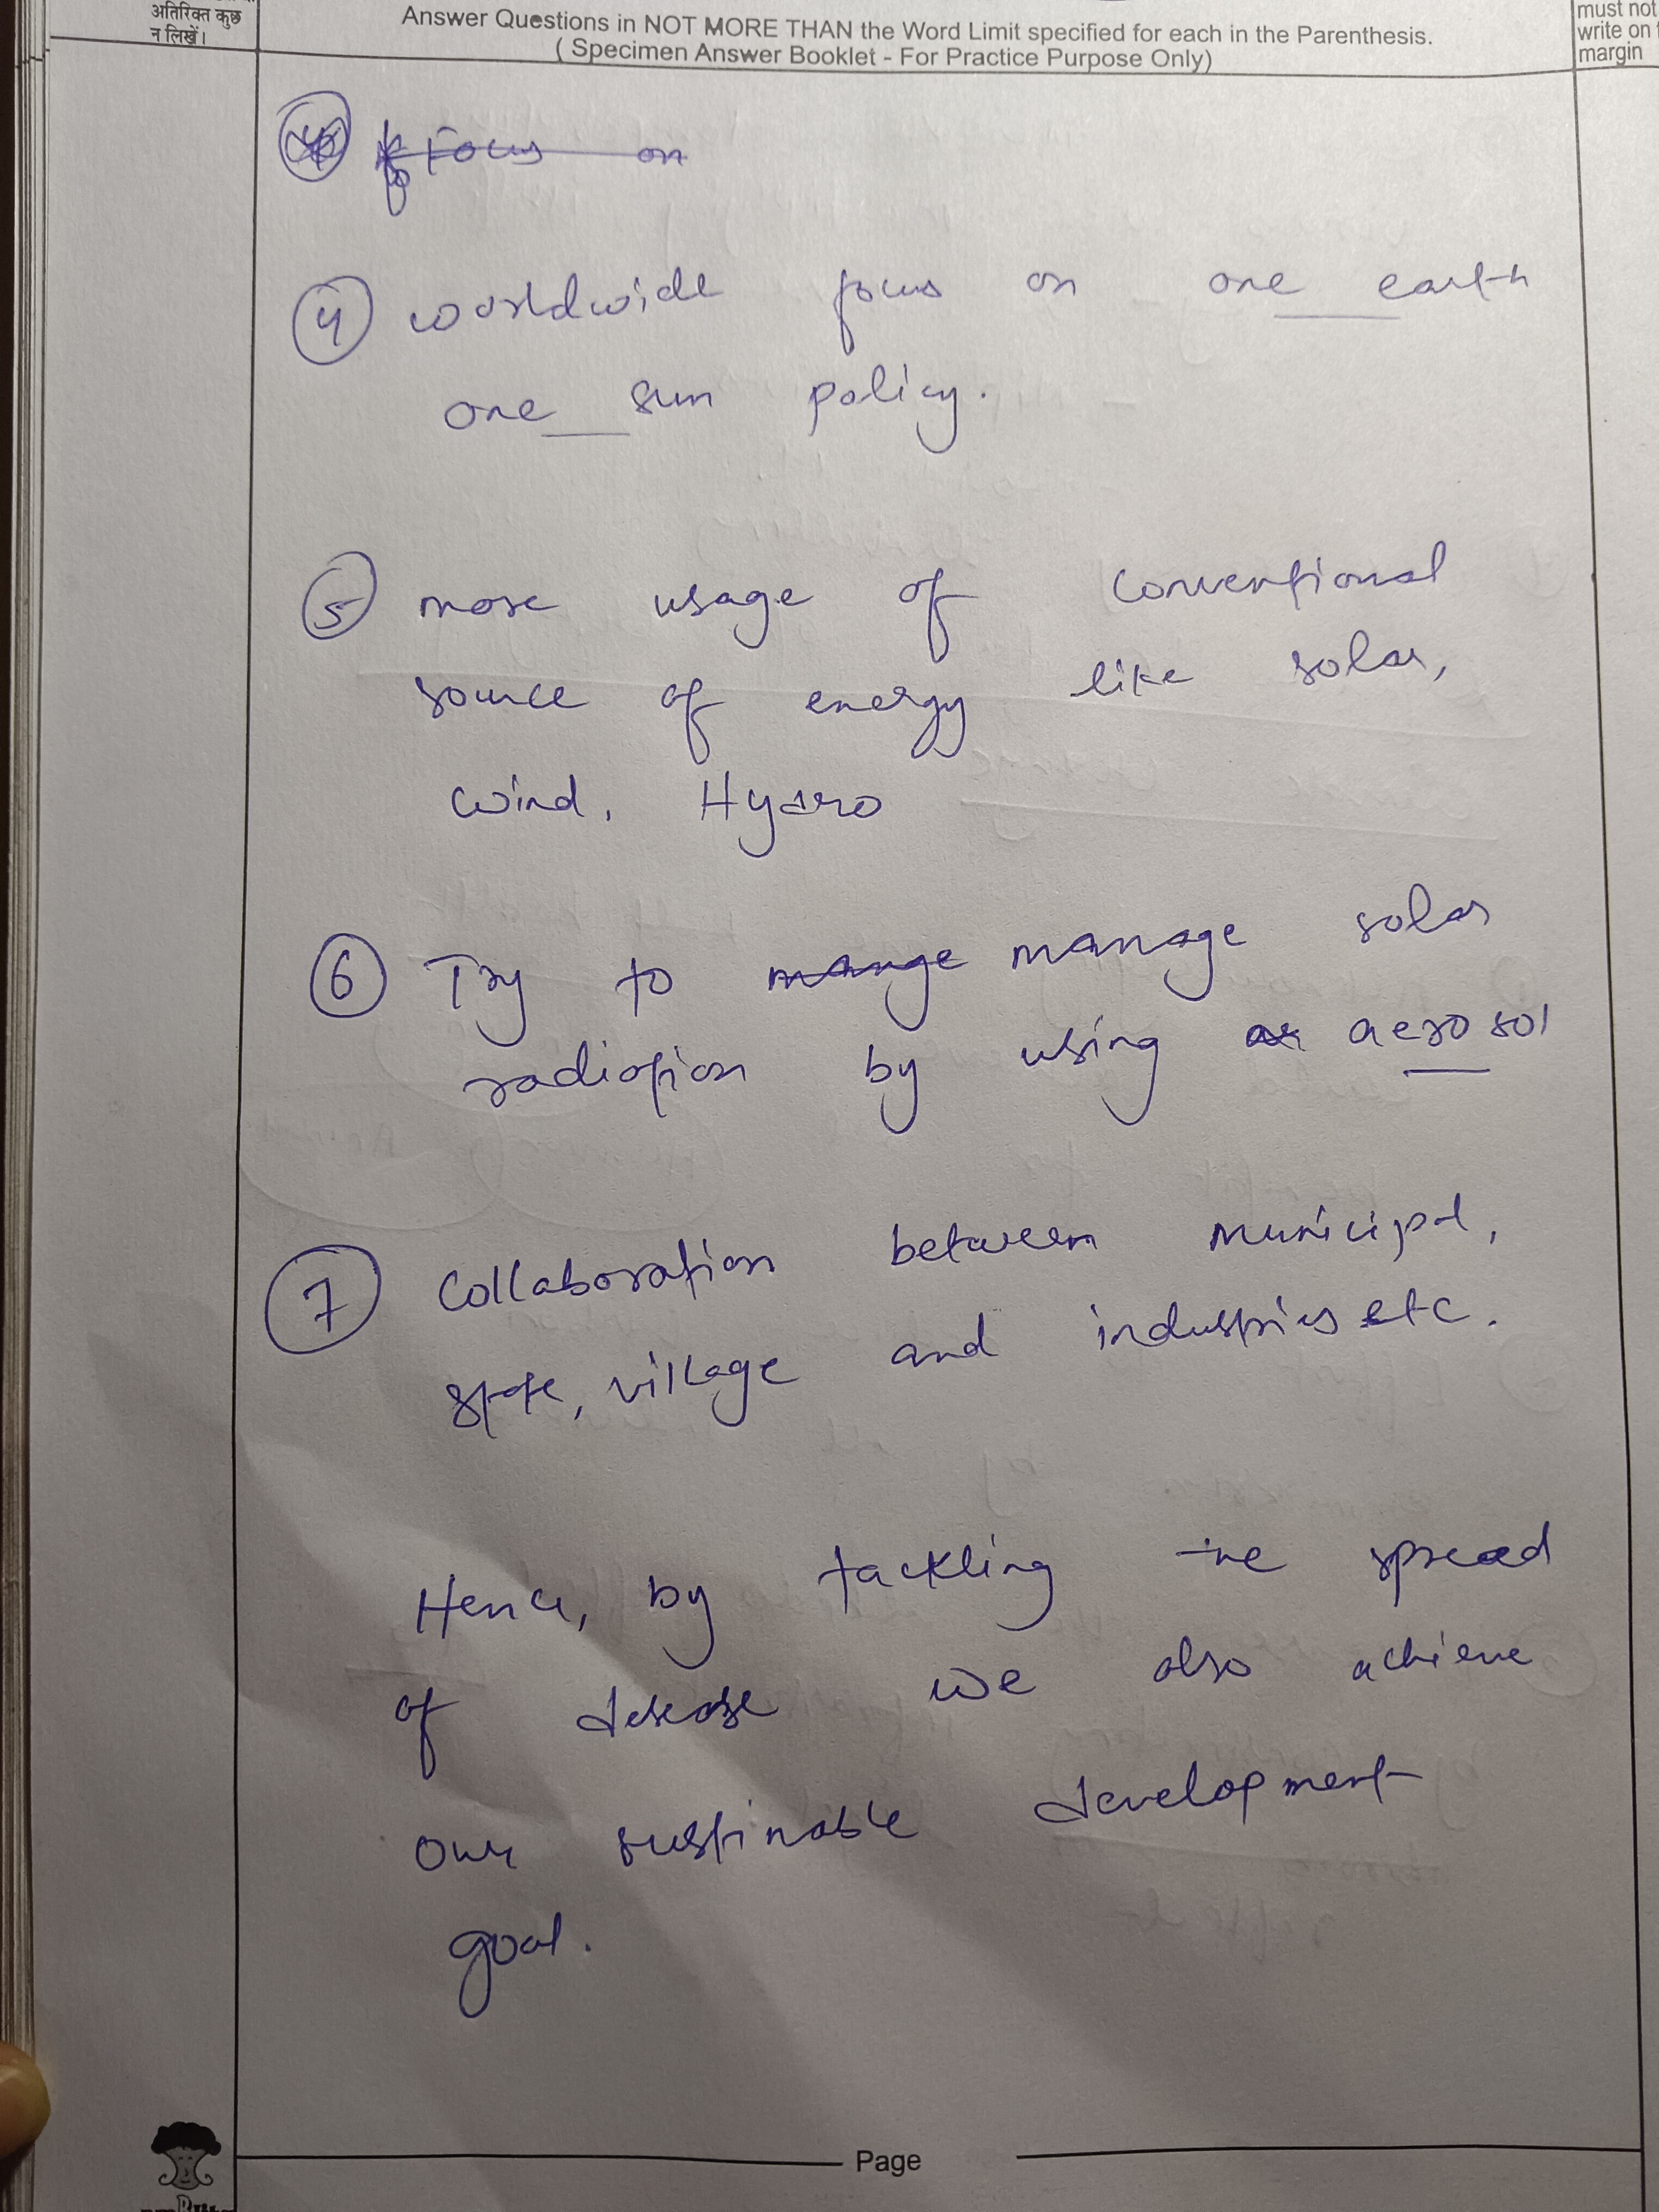 अतिरिक्त कुछ
न लिखें।
Answer Questions in NOT MORE THAN the Word Limit specified for each in the Parenthesis.
( Specimen Answer Booklet - For Practice Purpose Only)
must not
write on
margin
Focus on
4 worldwide focus on one earth
one sun policy.
5 more usage of conventional
source of energy like solar,
wind, Hydro
6 Try to mange manage solar
radiation by using aerosol
7 Collaboration between municipal,
state, village and industries etc.
Hence, by tackling the spread
of desease we also achieve
our sustinable development
goal.
Page